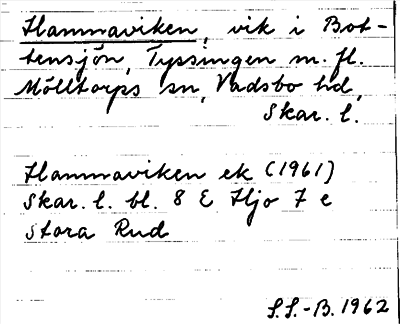 Hammaviken, vik i Bot-
tensjön, Tyssingen m. fl.
Mölltorps sn, Vadsbo hd,
Skar. l.
Hammaviken ek (1961)
Skar. l. bl. 8 E Hjo 7 e
Stora Rud
S.S.-B. 1962